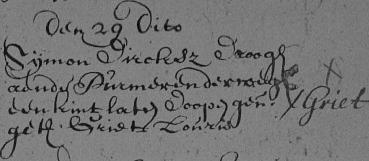 Den 29 Dito
Sijmon Dircksz Droogh
aende Purmerenderwegh
een kint laten Doopen gen: Griet
get. Griet Louris